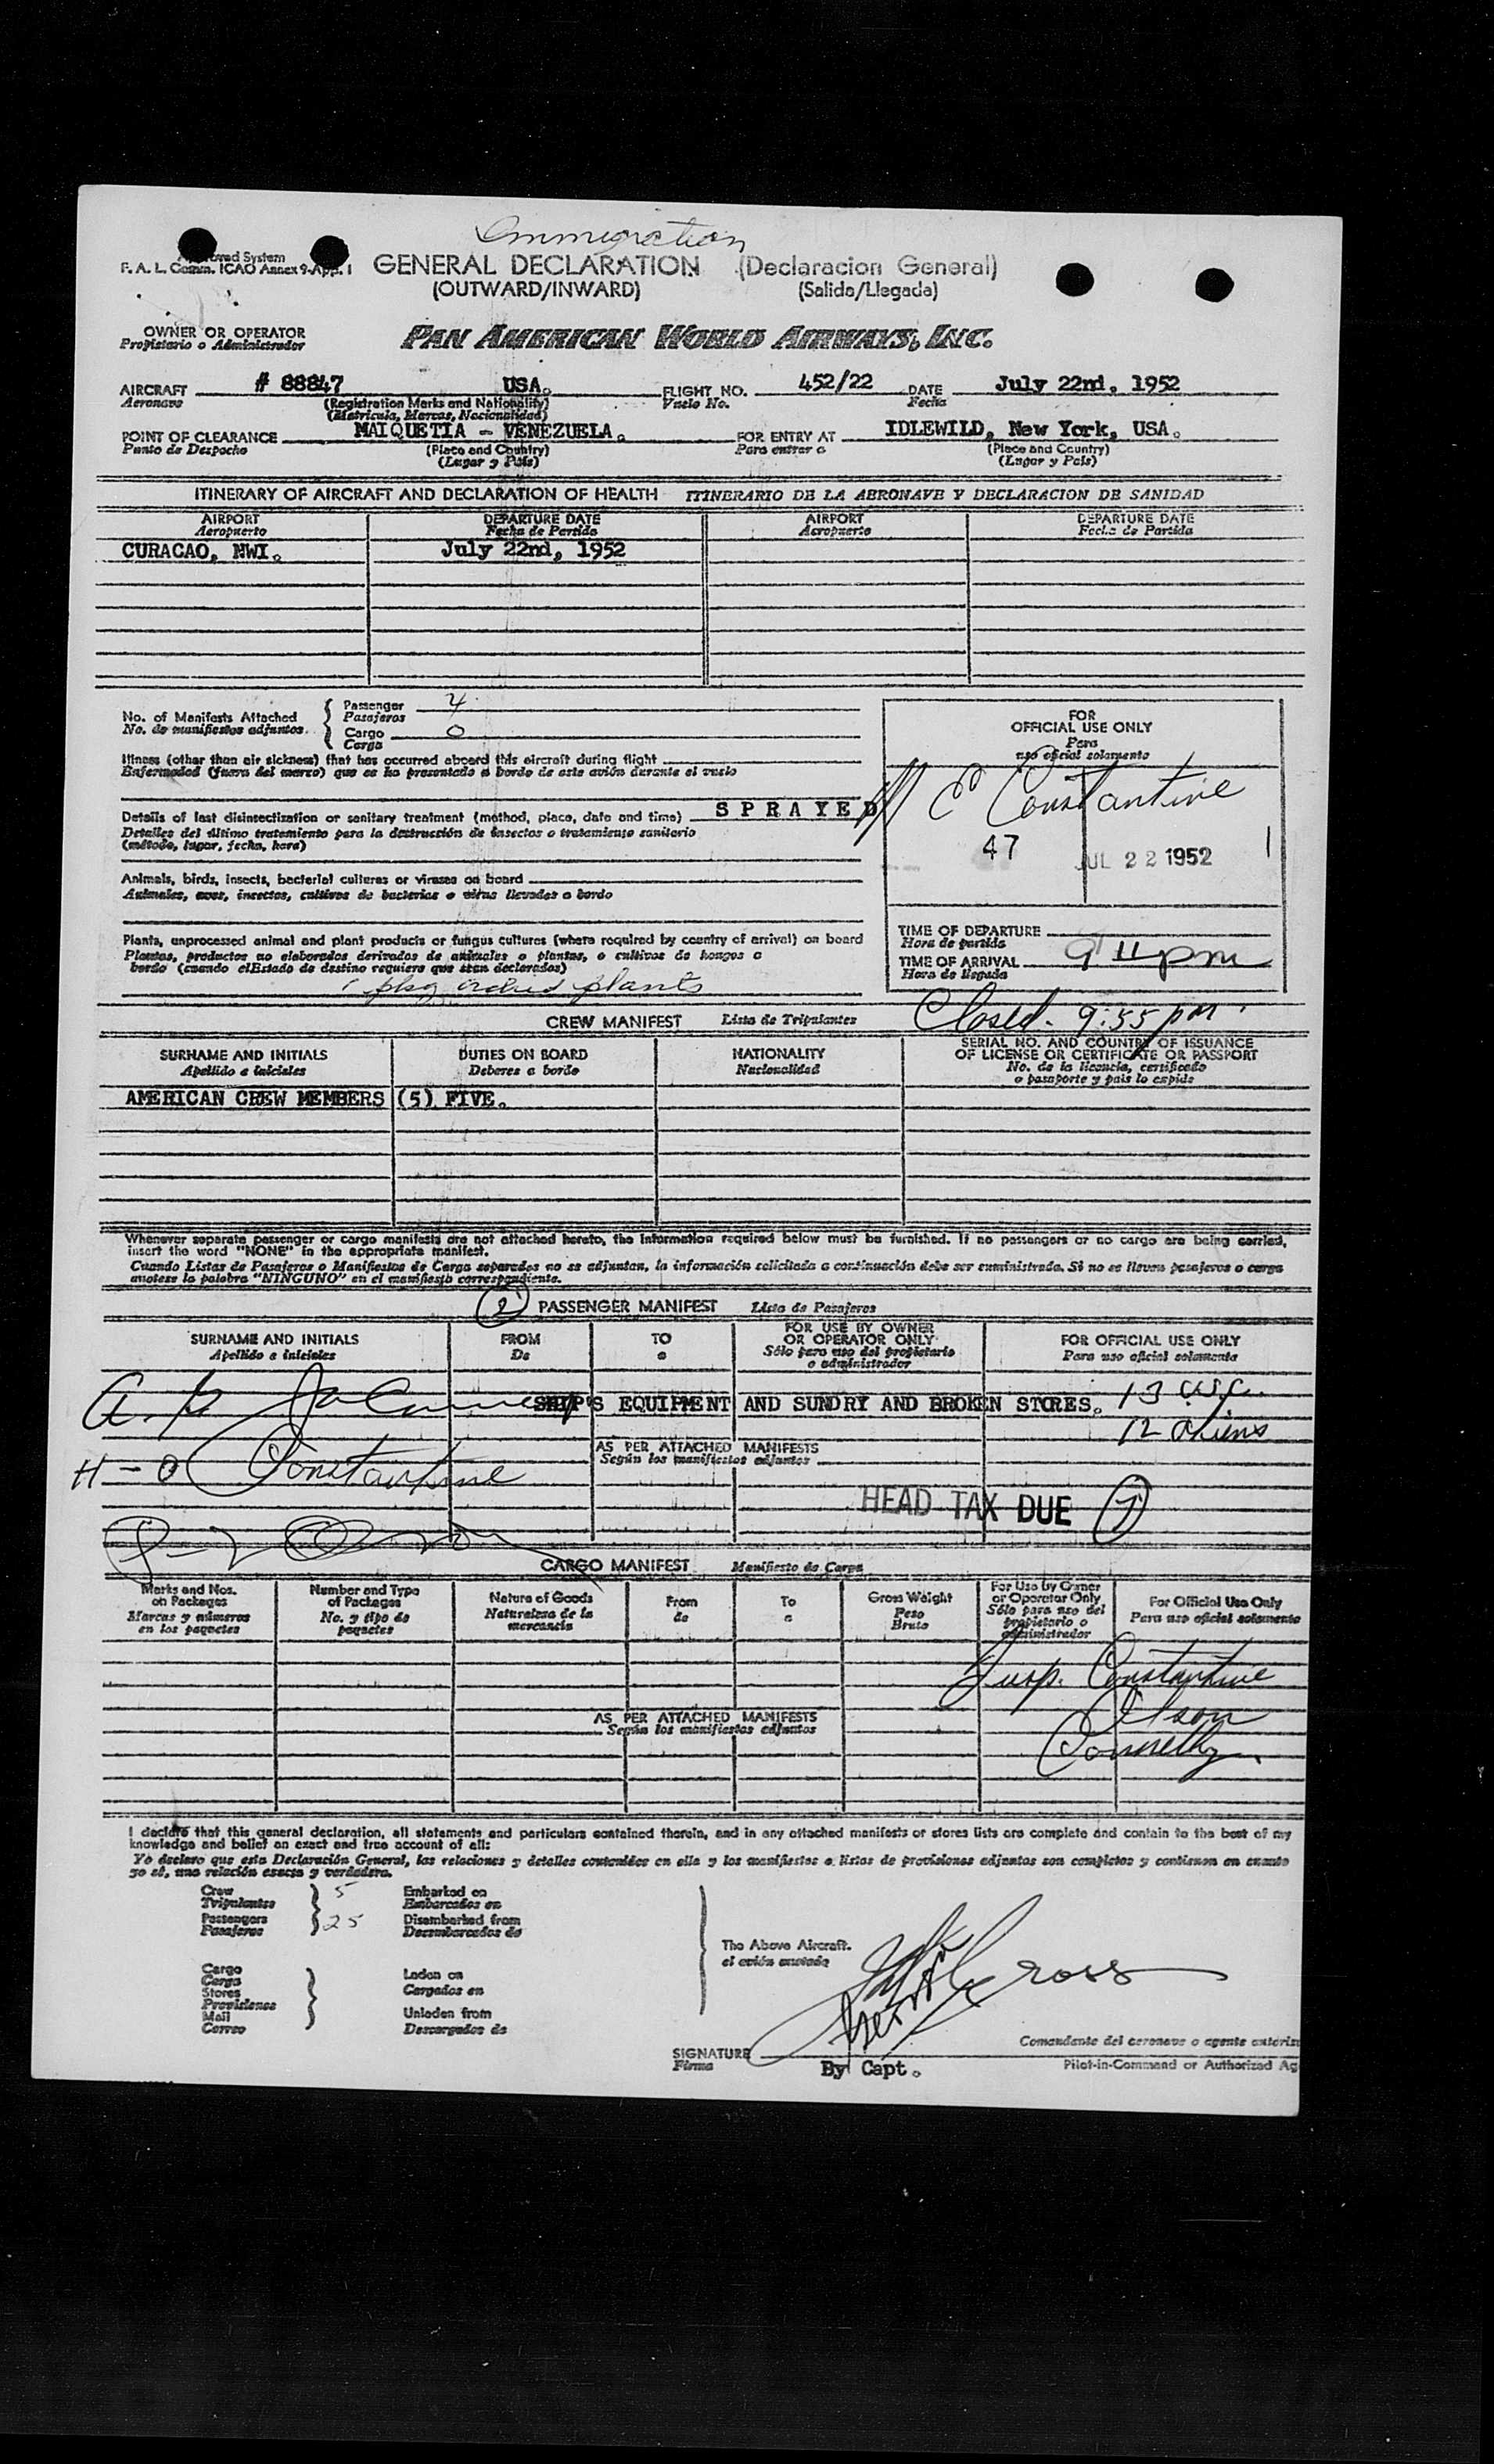 Immigration
Approved System
F. A. L. Comm. ICAO Annex 9-App. 1
GENERAL DECLARATION (Declaracion General)
(OUTWARD/INWARD) (Salida/Llegada)
OWNER OR OPERATOR
Propietario o Administrador
PAN AMERICAN WORLD AIRWAYS, INC.
AIRCRAFT # 88847 USA. FLIGHT NO. 452/22 DATE July 22nd, 1952
Aeronave (Registration Marks and Nationality) Vuelo No. Fecha
(Matricula, Marcas, Nacionalidad)
POINT OF CLEARANCE MAIQUETIA - VENEZUELA. FOR ENTRY AT IDLEWILD, New York, USA.
Punto de Despacho (Place and Country) Para entrar a (Place and Country)
(Lugar y País) (Lugar y País)
ITINERARY OF AIRCRAFT AND DECLARATION OF HEALTH ITINERARIO DE LA AERONAVE Y DECLARACION DE SANIDAD
AIRPORT DEPARTURE DATE AIRPORT DEPARTURE DATE
Aeropuerto Fecha de Partida Aeropuerto Fecha de Partida
CURACAO, NWI. July 22nd, 1952
No. of Manifests Attached
No. de manifiestos adjuntos
Passenger 4
Pasajeros
Cargo 0
Carga
Illness (other than air sickness) that has occurred aboard this aircraft during flight
Enfermedad (fuera del mareo) que se ha presentado a bordo de este avión durante el vuelo
Details of last disinsectization or sanitary treatment (method, place, date and time) SPRAYED
Detalles del último tratamiento para la destrucción de insectos o tratamiento sanitario
(método, lugar, fecha, hora)
Animals, birds, insects, bacterial cultures or viruses on board
Animales, aves, insectos, cultivos de bacterias o virus llevados a bordo
Plants, unprocessed animal and plant products or fungus cultures (where required by country of arrival) on board
Plantas, productos no elaborados derivados de animales o plantas, o cultivos de hongos a
bordo (cuando el Estado de destino requiere que sean declarados)
pkg plants
FOR
OFFICIAL USE ONLY
Para
uso oficial solamente
Constantine
47 JUL 22 1952
TIME OF DEPARTURE
Hora de partida
TIME OF ARRIVAL 9 11 pm
Hora de llegada
Closed - 9:55 pm
CREW MANIFEST Lista de Tripulantes
SURNAME AND INITIALS DUTIES ON BOARD NATIONALITY SERIAL NO. AND COUNTRY OF ISSUANCE
OF LICENSE OR CERTIFICATE OR PASSPORT
Apellido e iniciales Deberes a bordo Nacionalidad No. de la licencia, certificado
o pasaporte y pais lo expide
AMERICAN CREW MEMBERS (5) FIVE.
Whenever separate passenger or cargo manifests are not attached hereto, the information required below must be furnished. If no passengers or no cargo are being carried,
insert the word "NONE" in the appropriate manifest.
Cuando Listas de Pasajeros o Manifiestos de Carga separados no se adjuntan, la información solicitada a continuación debe ser suministrada. Si no se llevan pasajeros o carga
anotese la palabra "NINGUNO" en el manifiesto correspondiente.
2 PASSENGER MANIFEST Lista de Pasajeros
SURNAME AND INITIALS FROM TO FOR USE BY OWNER
OR OPERATOR ONLY FOR OFFICIAL USE ONLY
Apellido e iniciales De a Sólo para uso del propietario
o administrador Para uso oficial solamente
SHIP'S EQUIPMENT AND SUNDRY AND BROKEN STORES. 13
12 aliens
AS PER ATTACHED MANIFESTS
Según los manifiestos adjuntos
Constantine
HEAD TAX DUE
CARGO MANIFEST Manifiesto de Carga
Marks and Nos.
on Packages
Marcas y números
en los paquetes
Number and Type
of Packages
No. y tipo de
paquetes
Nature of Goods
Naturaleza de la
mercancía
From
de
To
a
Gross Weight
Peso
Bruto
For Use by Owner
or Operator Only
Sólo para uso del
propietario o
administrador
For Official Use Only
Para uso oficial solamente
Insp. Constantine
Olson
Connelly
AS PER ATTACHED MANIFESTS
Según los manifiestos adjuntos
I declare that this general declaration, all statements and particulars contained therein, and in any attached manifests or stores lists are complete and contain to the best of my
knowledge and belief an exact and true account of all:
Yo declaro que esta Declaración General, las relaciones y detalles contenidos en ella y los manifiestos o listas de provisiones adjuntos son completos y contienen en cuanto
yo sé, una relación exacta y verdadera.
Crew 5 Embarked on
Tripulantes Embarcados en
Passengers 25 Disembarked from
Pasajeros Desembarcados de
Cargo
Carga
Stores
Provisiones
Mail
Correo
Laden on
Cargados en
Unladen from
Descargados de
The Above Aircraft.
el avión anotado
Cross
SIGNATURE
Firma
By Capt.
Comandante del aeronave o agente autoriz
Pilot-in-Command or Authorized Ag